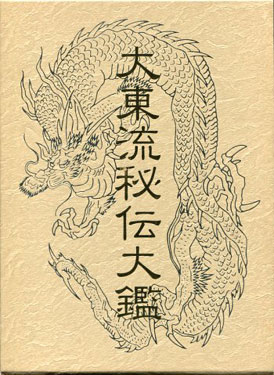 大東流秘伝大鑑